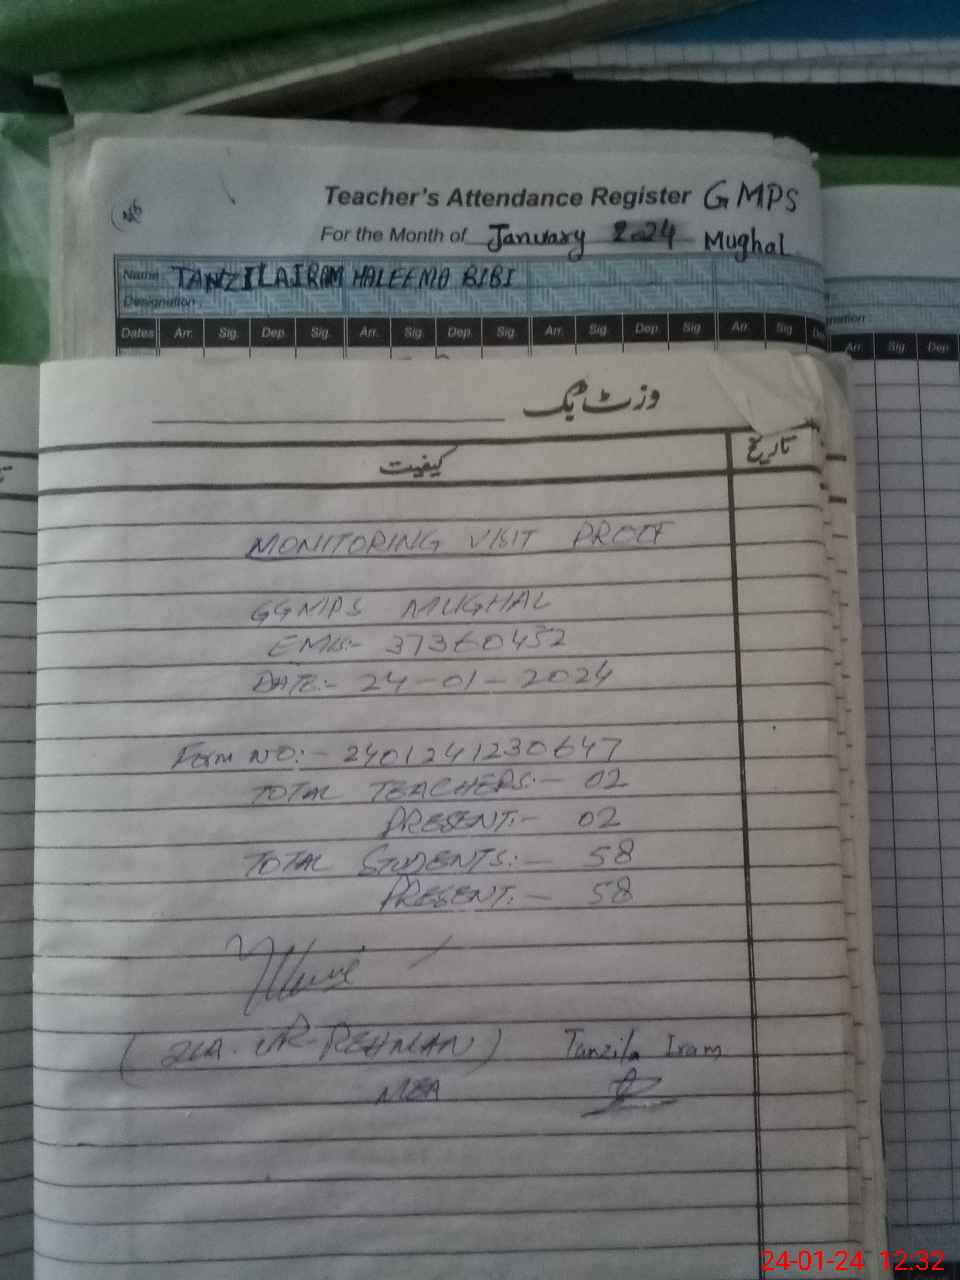 Teacher's Attendance Register GMPS
For the Month of January 2024 Mughal
Name: TANZILA IRAM HALEEMA BIBI
Designation:
Dates Arr. Sig. Dep. Sig. Arr. Sig. Dep. Sig. Arr. Sig. Dep. Sig Arr. Sig
Arr. Sig. Dep
وزٹ بک
کیفیت تاریخ
MONITORING VISIT PROOF
GGMPS MUGHAL
EMIS:- 37360452
DATE:- 24-01-2024
Form NO:- 2401241230647
TOTAL TEACHERS:- 02
PRESENT:- 02
TOTAL STUDENTS:- 58
PRESENT:- 58
(ZIA-UR-REHMAN) Tanzila Iram
MEA
24-01-24 12:32